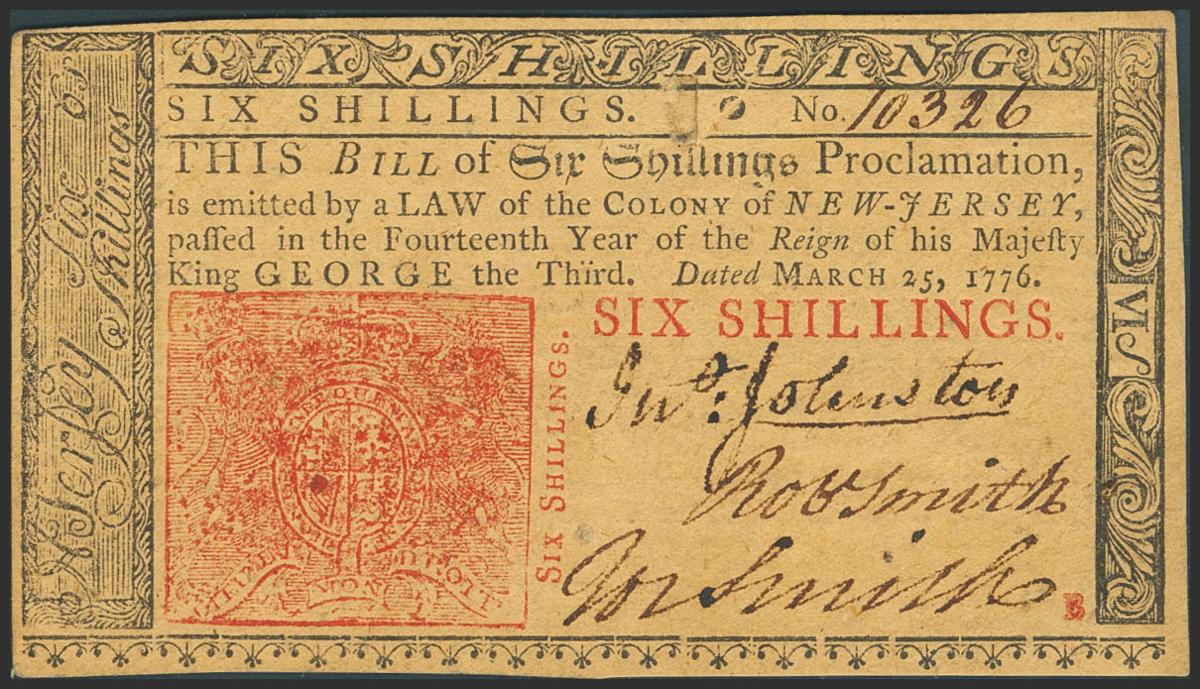 SIX SHILLINGS
SIX SHILLINGS. No. 10326
THIS BILL of Six Shillings Proclamation,
is emitted by a LAW of the COLONY of NEW-JERSEY,
paſſed in the Fourteenth Year of the Reign of his Majeſty
King GEORGE the Third. Dated MARCH 25, 1776.
SIX SHILLINGS.
Jnº. Johnston
Robt Smith
Jos Smith
B
SIX SHILLINGS.
N Jerſey Six os
Shillings
VI S
DIEU ET MON DROIT